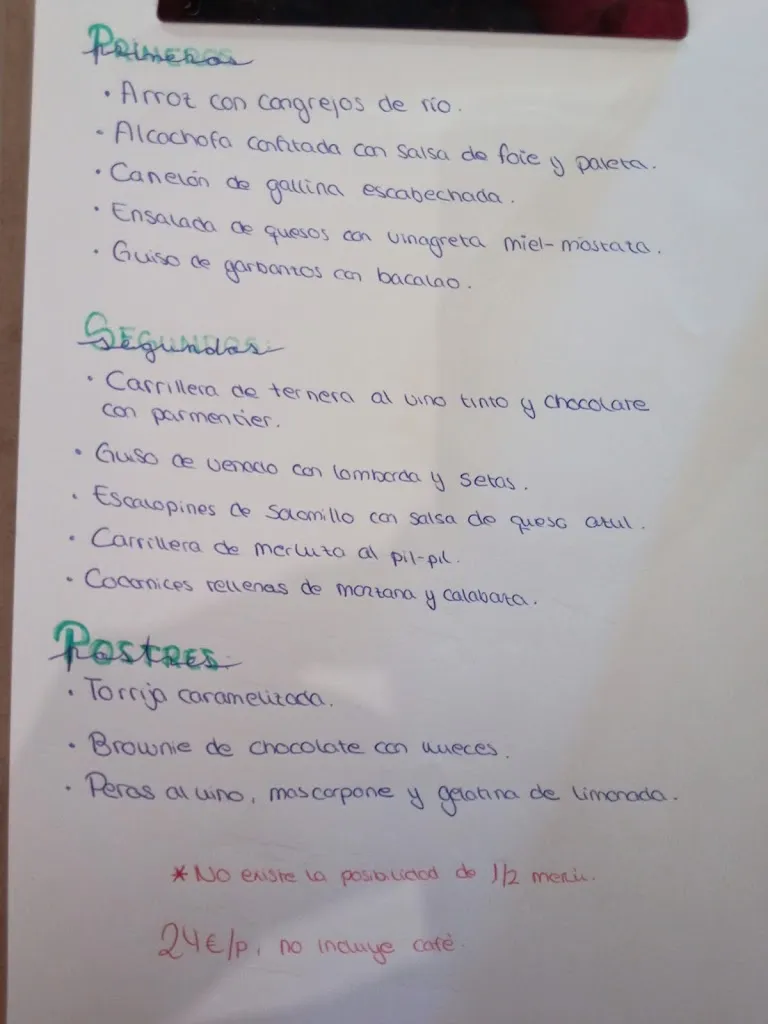 Primeros
• Arroz con cangrejos de río.
• Alcachofa confitada con salsa de foie y paleta.
• Canelón de gallina escabechada.
• Ensalada de quesos con vinagreta miel-mostaza.
• Guiso de garbanzos con bacalao.
Segundos
• Carrillera de ternera al vino tinto y chocolate
con parmentier.
• Guiso de venado con lombarda y setas.
• Escalopines de solomillo con salsa de queso azul.
• Carrillera de merluza al pil-pil.
• Codornices rellenas de manzana y calabaza.
Postres
• Torrija caramelizada.
• Brownie de chocolate con nueces.
• Peras al vino, mascarpone y gelatina de limonada.
* No existe la posibilidad de 1/2 menú.
24€/p, no incluye café.